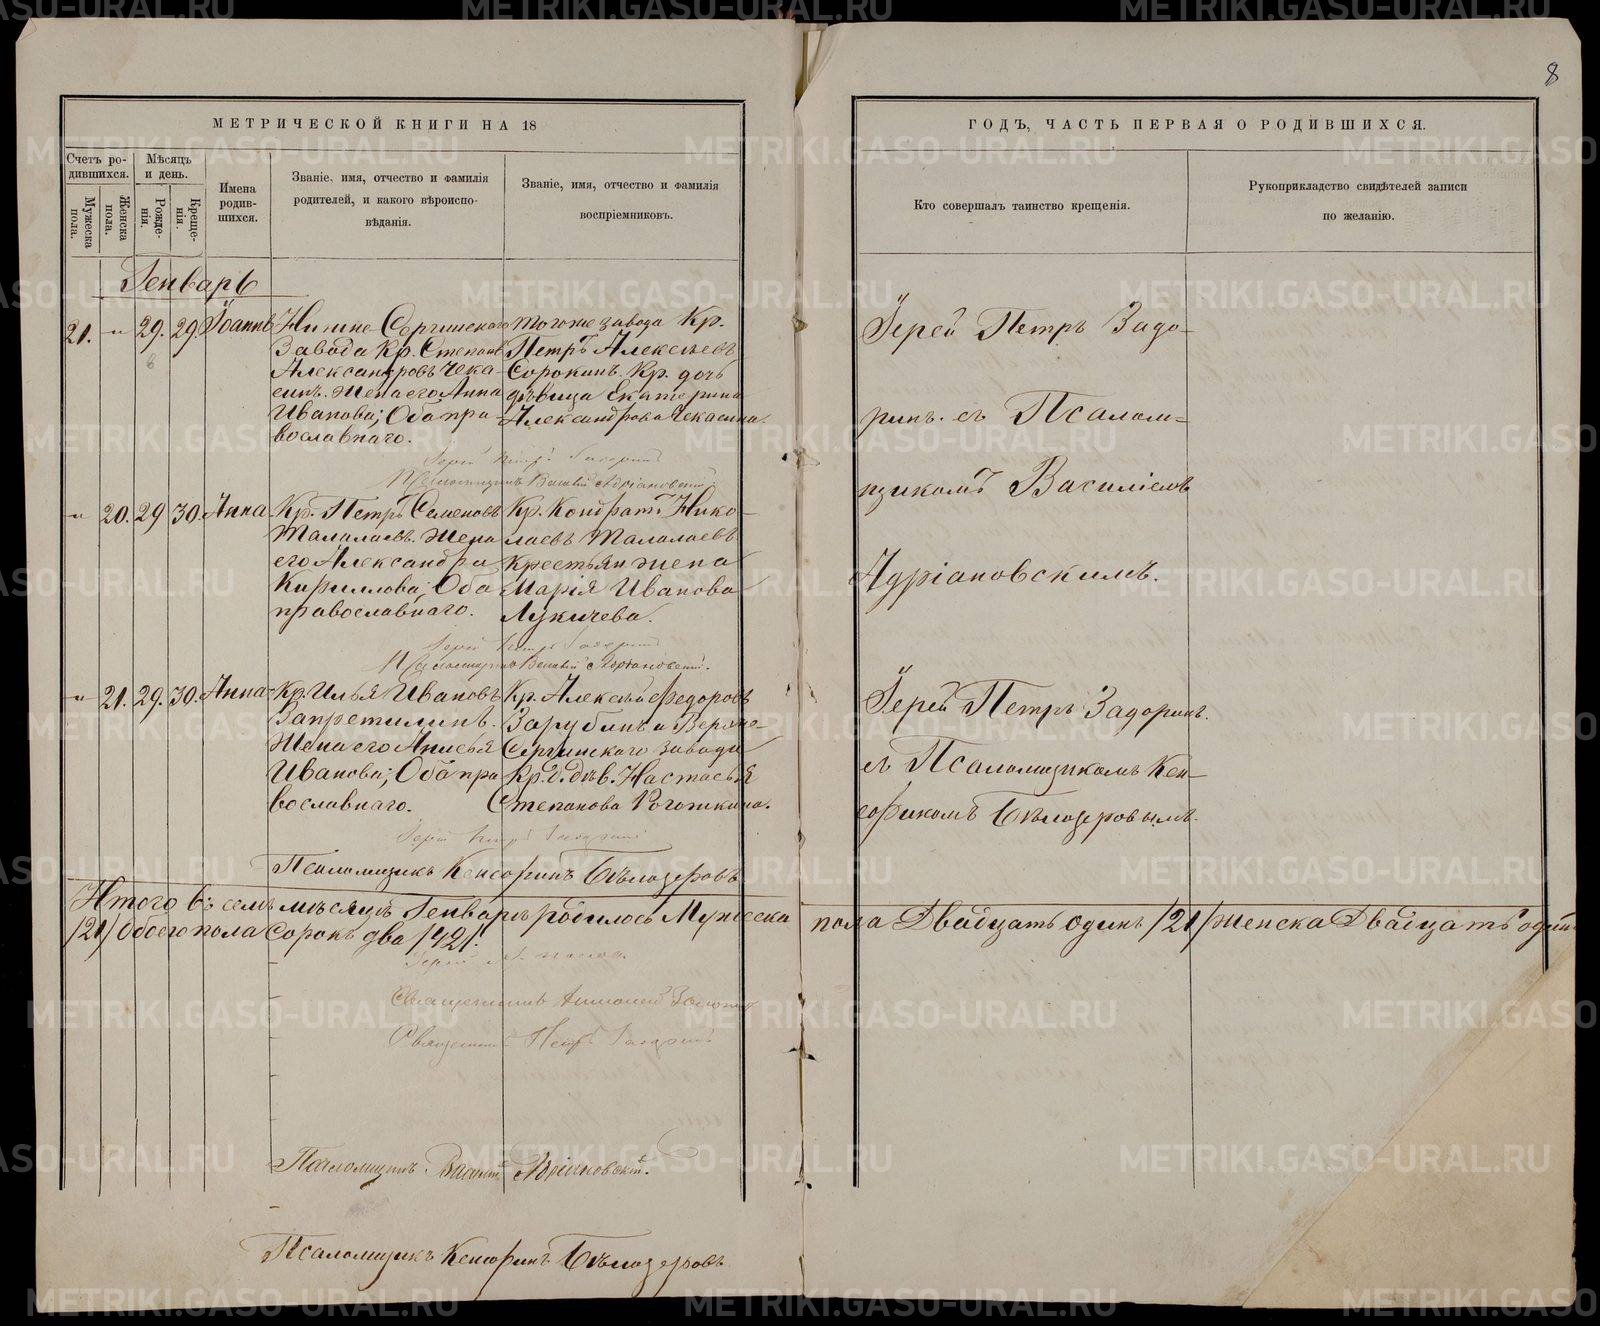 8
МЕТРИЧЕСКОЙ КНИГИ НА 18
ГОДЪ, ЧАСТЬ ПЕРВАЯ О РОДИВШИХСЯ.
Счетъ ро-
дившихся.
Мужеска
пола.
Женска
пола.
Мѣсяцъ
и день.
Рожде-
нія.
Креще-
нія.
Имена
родив-
шихся.
Званіе, имя, отчество и фамилія
родителей, и какого вѣроиспо-
вѣданія.
Званіе, имя, отчество и фамилія
воспріемниковъ.
Кто совершалъ таинство крещенія.
Рукоприкладство свидѣтелей записи
по желанію.
Генварь
21. " 29. 29. Іоаннъ
Нижне-Сергинскаго
Завода Кр. Степанъ
Александровъ Чека-
синъ. Жена его Анна
Иванова; Оба пра-
вославнаго.
тогоже завода Кр.
Петръ Алексѣевъ
Сорокинъ. Кр. дочь
дѣвица Екатерина
Александрова Чекасина.
Іерей Петръ Задо-
ринъ. съ Псалом-
щикомъ Василіемъ
Адріановскимъ.
Іерей Петръ Задоринъ
Псаломщикъ Василій Адріановскій
" 20. 29 30. Анна
Кр. Петръ Семеновъ
Талалаевъ. Жена
его Александра
Кириллова; Оба
православнаго.
Кр. Кондратъ Нико-
лаевъ Талалаевъ
Крестьян жена
Марія Иванова
Лукичева.
Іерей Петръ Задоринъ
Псаломщикъ Василій Адріановскій.
" 21. 29. 30. Анна
Кр. Илья Ивановъ
Запретилинъ.
Жена его Анисья
Иванова; Оба пра
вославнаго.
Кр. Алексѣй Федоровъ
Зарубинъ и Верхне-
Сергинскаго завода
Кр. д. дѣв. Настасья
Степанова Рогожкина.
Іерей Петръ Задоринъ.
съ Псаломщикомъ Кен-
сориномъ Бѣлозеровымъ.
Іерей Петръ Задоринъ
Псаломщикъ Кенсоринъ Бѣлозеровъ
Итого въ семъ мѣсяцѣ Генварѣ родилось Мужеска пола Двадцать одинъ /21/ Женска Двадцать одинъ
/21/ Обоего пола Сорокъ два /42/.
Іерей
Священникъ
Священникъ Петръ Задоринъ
Псаломщикъ Василій Адріановскій.
Псаломщикъ Кенсоринъ Бѣлозеровъ
METRIKI.GASO-URAL.RU